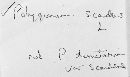 Polygonum scandens
L
not P dumetorum
var scandens